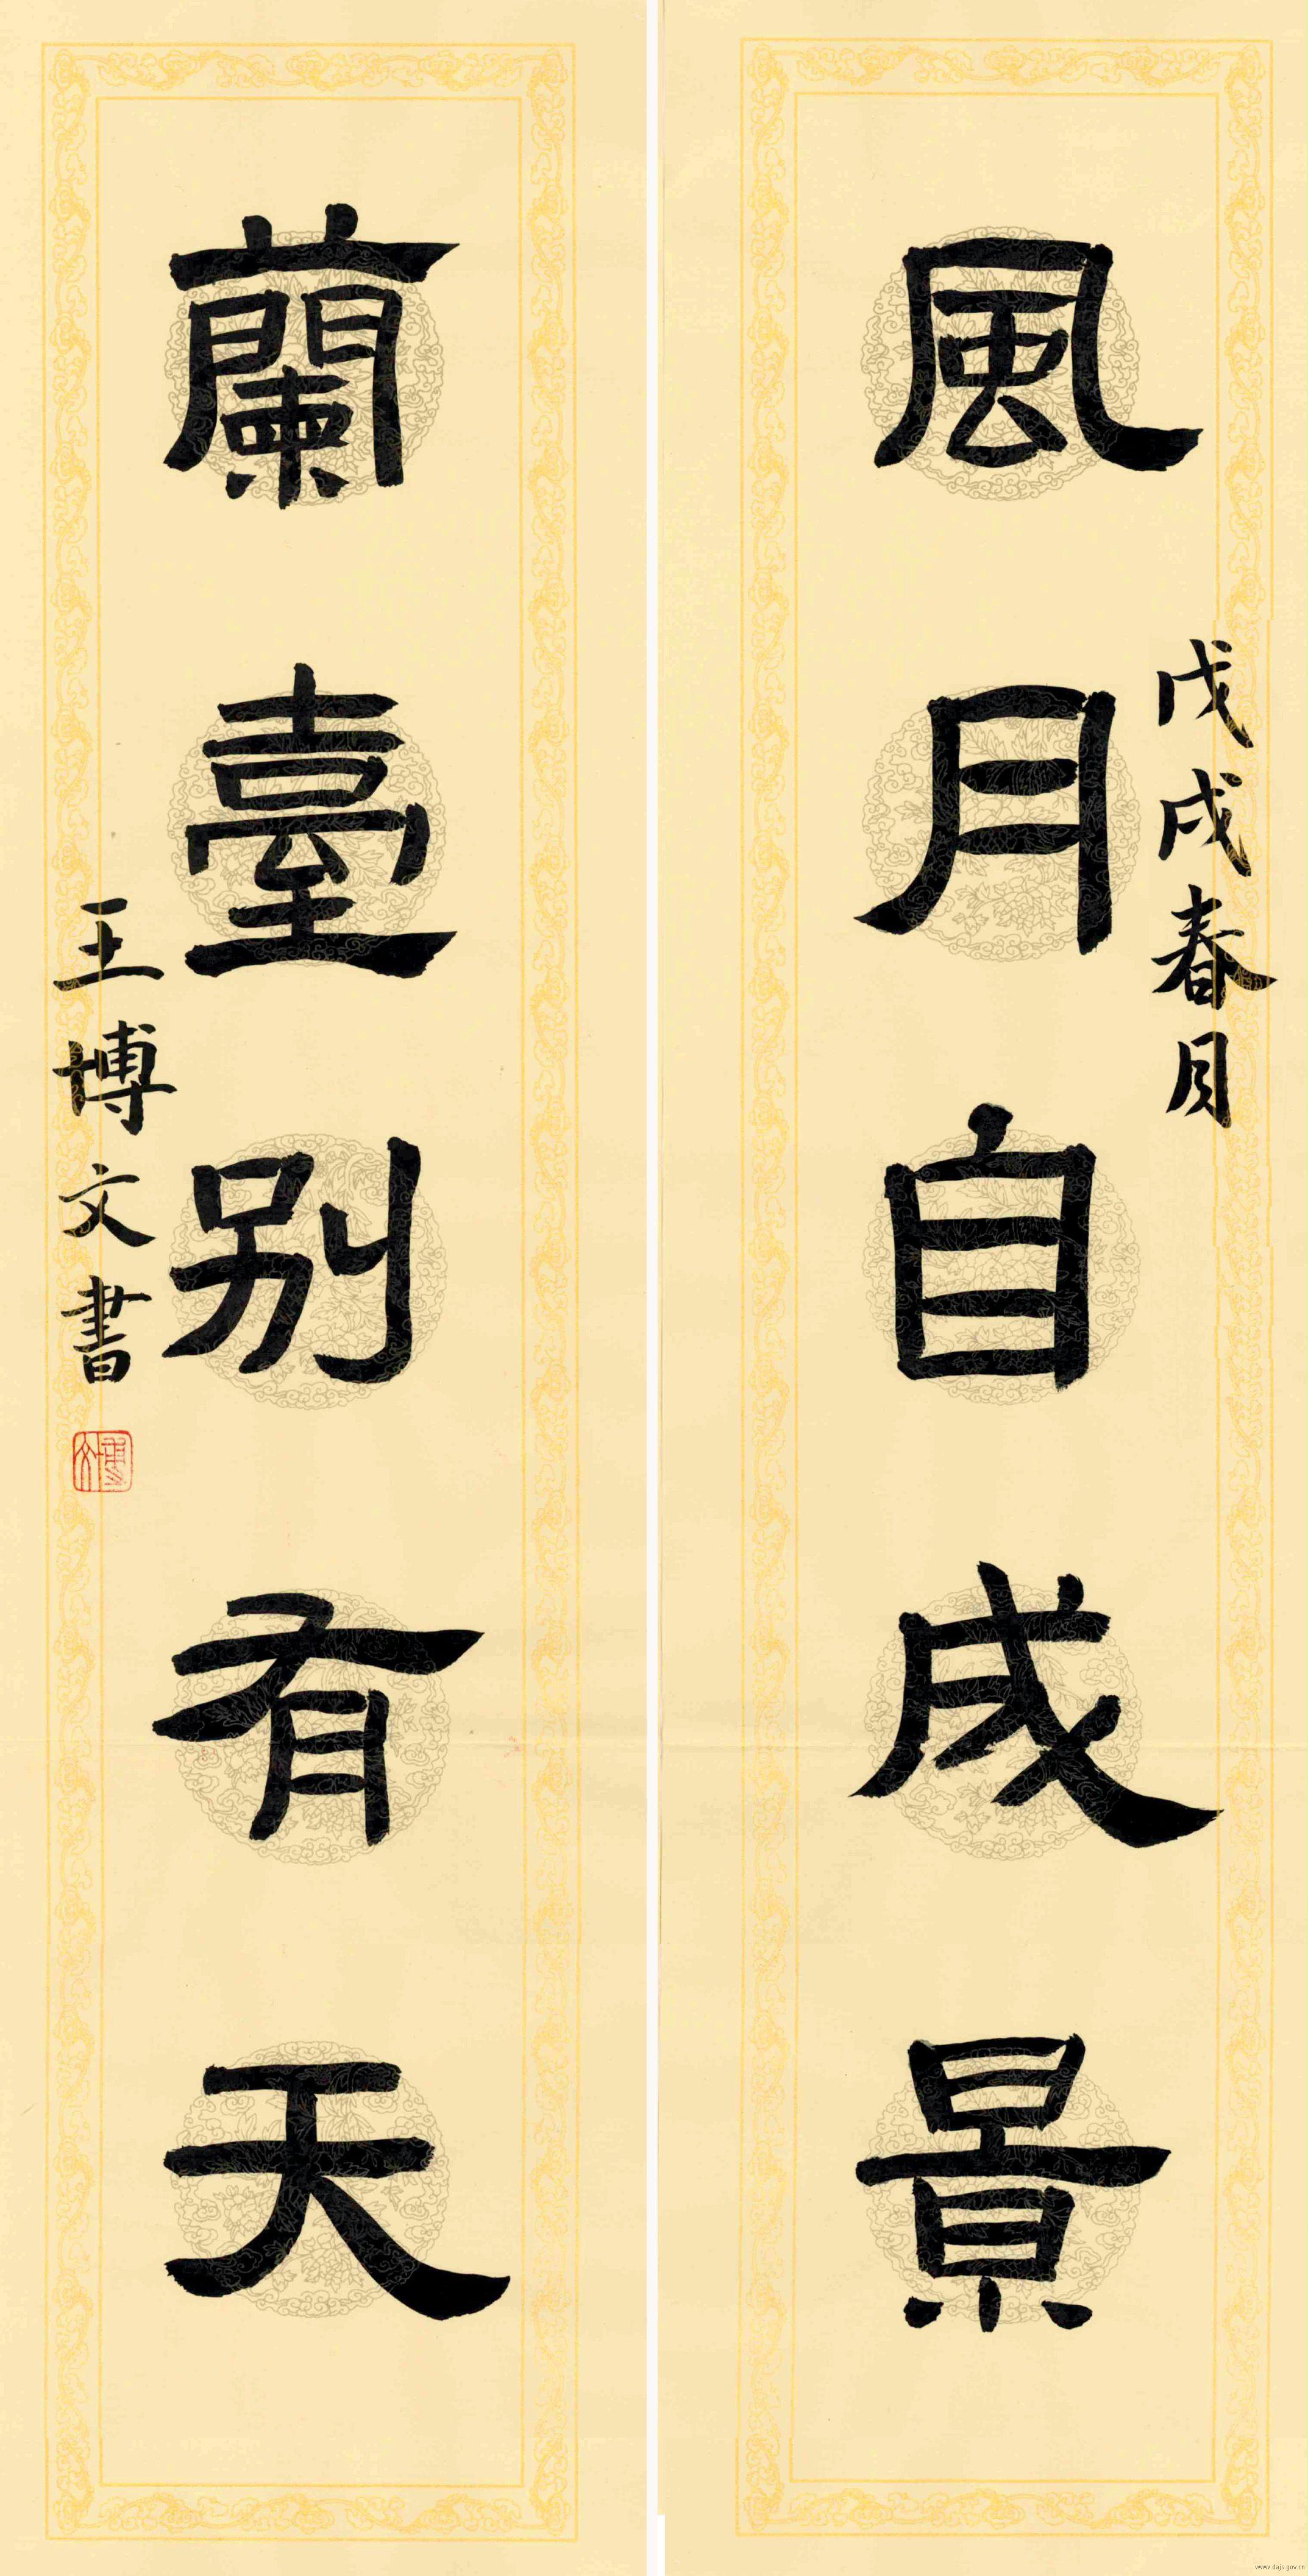 風月自成景
戊戌春月
蘭臺別有天
王博文書
博文
www.dajs.gov.cn